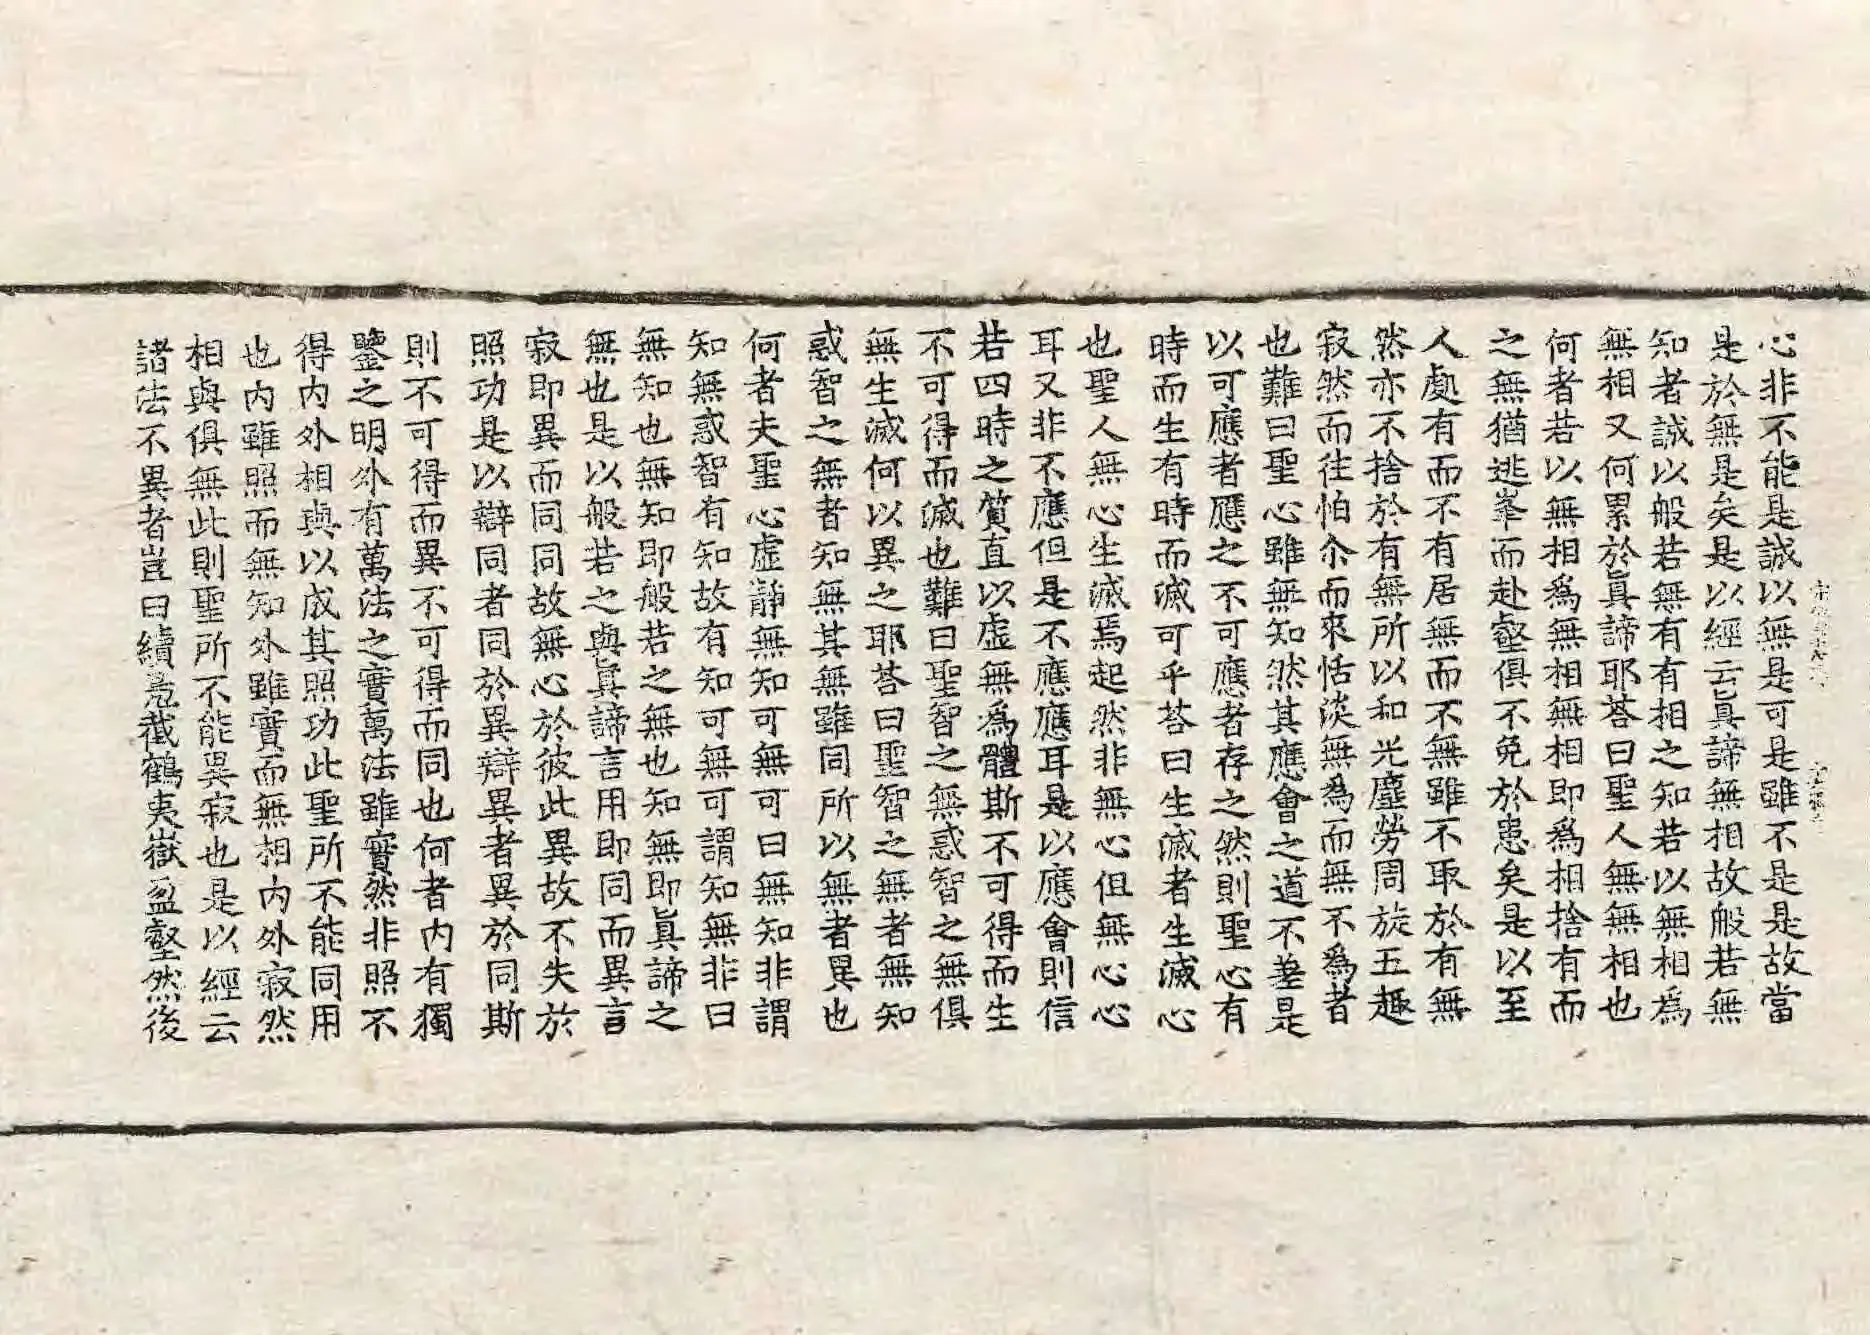 心非不能是誠以無是可是雖不是是故當
是於無是矣是以經云眞諦無相故般若無
知者誠以般若無有有相之知若以無相爲
無相又何累於眞諦耶荅曰聖人無無相也
何者若以無相爲無相無相即爲相捨有而
之無猶逃峯而赴壑俱不免於患矣是以至
人處有而不有居無而不無雖不取於有無
然亦不捨於有無所以和光塵勞周旋五趣
寂然而往怕尒而來恬淡無爲而無不爲者
也難曰聖心雖無知然其應會之道不差是
以可應者應之不可應者存之然則聖心有
時而生有時而滅可乎荅曰生滅者生滅心
也聖人無心生滅焉起然非無心但無心心
耳又非不應但是不應應耳是以應會則信
若四時之質直以虛無爲體斯不可得而生
不可得而滅也難曰聖智之無惑智之無俱
無生滅何以異之耶荅曰聖智之無者無知
惑智之無者知無其無雖同所以無者異也
何者夫聖心虛靜無知可無可曰無知非謂
知無惑智有知故有知可無可謂知無非曰
無知也無知即般若之無也知無即眞諦之
無也是以般若之與眞諦言用即同而異言
寂即異而同同故無心於彼此異故不失於
照功是以辯同者同於異辯異者異於同斯
則不可得而異不可得而同也何者内有獨
鑒之明外有萬法之實萬法雖實然非照不
得内外相與以成其照功此聖所不能同用
也内雖照而無知外雖實而無相内外寂然
相與俱無此則聖所不能異寂也是以經云
諸法不異者豈曰續鳧截鶴夷嶽盈壑然後